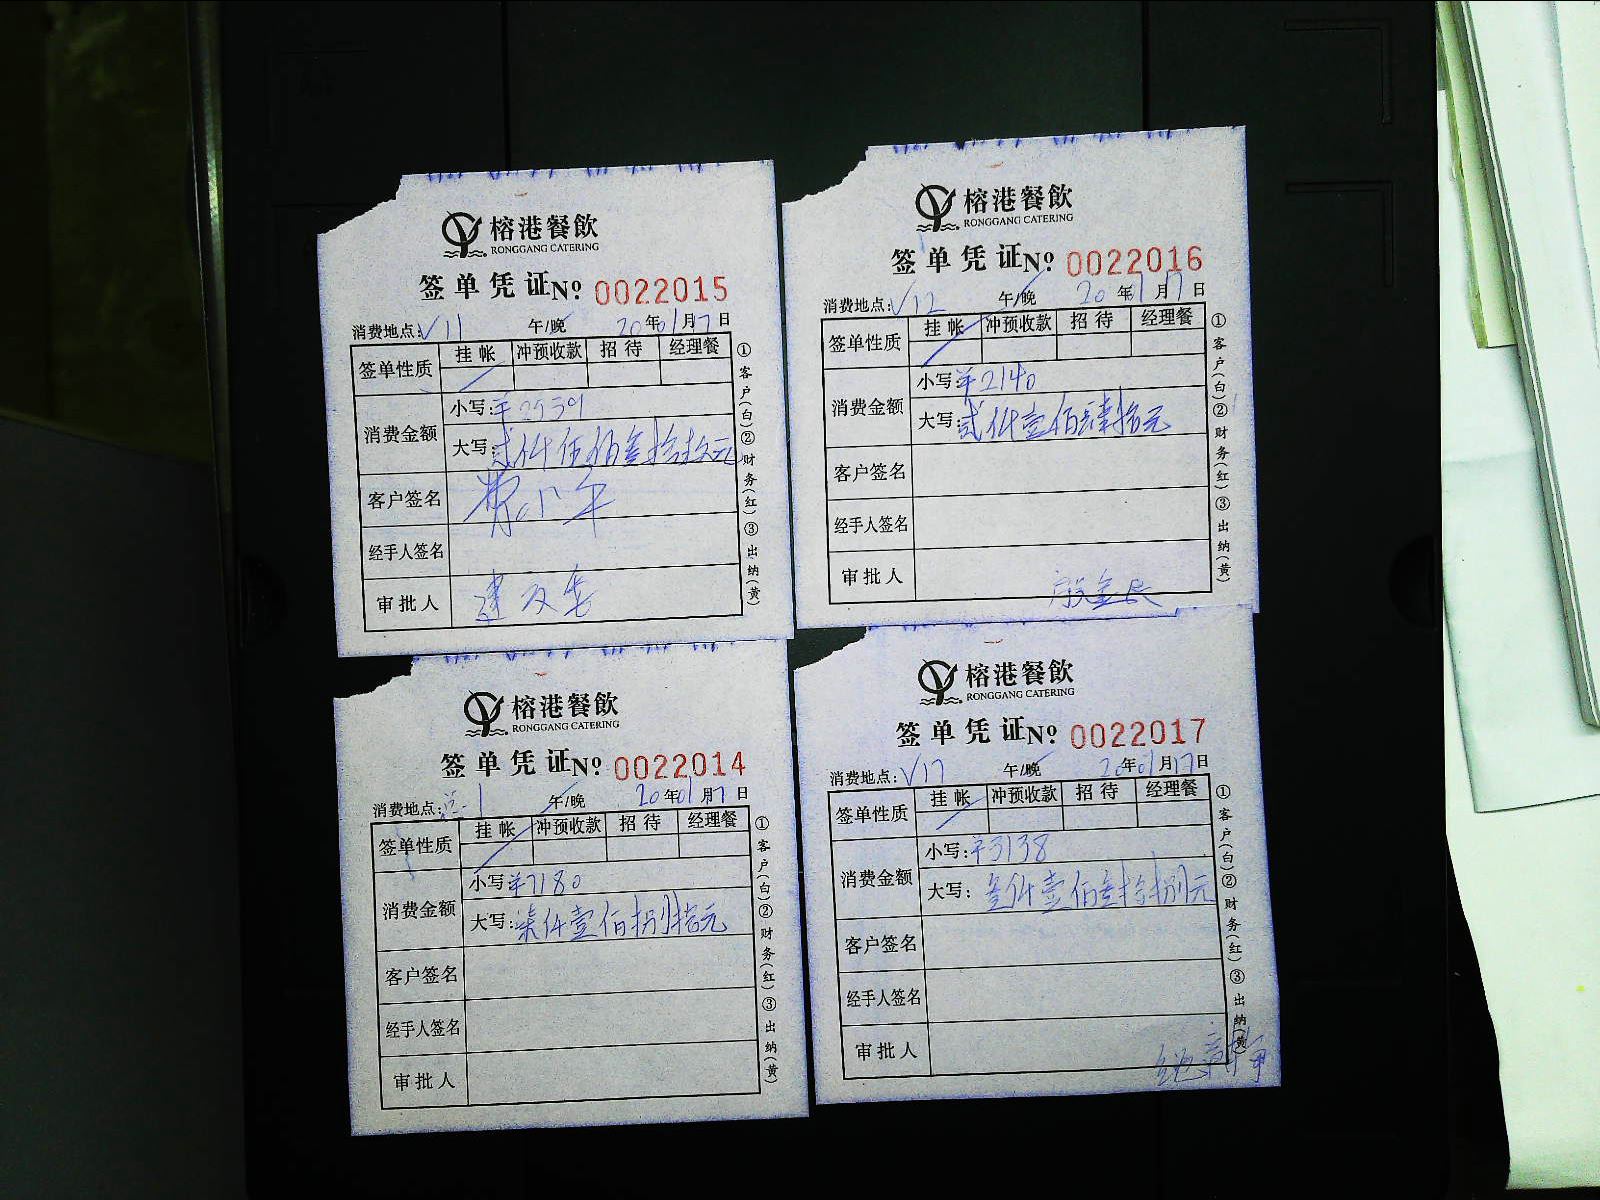 榕港餐飲
RONGGANG CATERING
签单凭证 № 0022015
消费地点: V11 午/晚 20年01月17日
签单性质 挂帐 冲预收款 招待 经理餐
消费金额 小写: ¥2539
大写: 贰仟伍佰叁拾玖元
客户签名
经手人签名
审批人
①客户(白)②财务(红)③出纳(黄)
榕港餐飲
RONGGANG CATERING
签单凭证 № 0022016
消费地点: V12 午/晚 20年01月17日
签单性质 挂帐 冲预收款 招待 经理餐
消费金额 小写: ¥2140
大写: 贰仟壹佰肆拾元
客户签名
经手人签名
审批人
①客户(白)②财务(红)③出纳(黄)
榕港餐飲
RONGGANG CATERING
签单凭证 № 0022014
消费地点: 午/晚 20年01月17日
签单性质 挂帐 冲预收款 招待 经理餐
消费金额 小写: ¥7180
大写: 柒仟壹佰捌拾元
客户签名
经手人签名
审批人
①客户(白)②财务(红)③出纳(黄)
榕港餐飲
RONGGANG CATERING
签单凭证 № 0022017
消费地点: V17 午/晚 20年01月17日
签单性质 挂帐 冲预收款 招待 经理餐
消费金额 小写: ¥3138
大写: 叁仟壹佰叁拾捌元
客户签名
经手人签名
审批人
①客户(白)②财务(红)③出纳(黄)